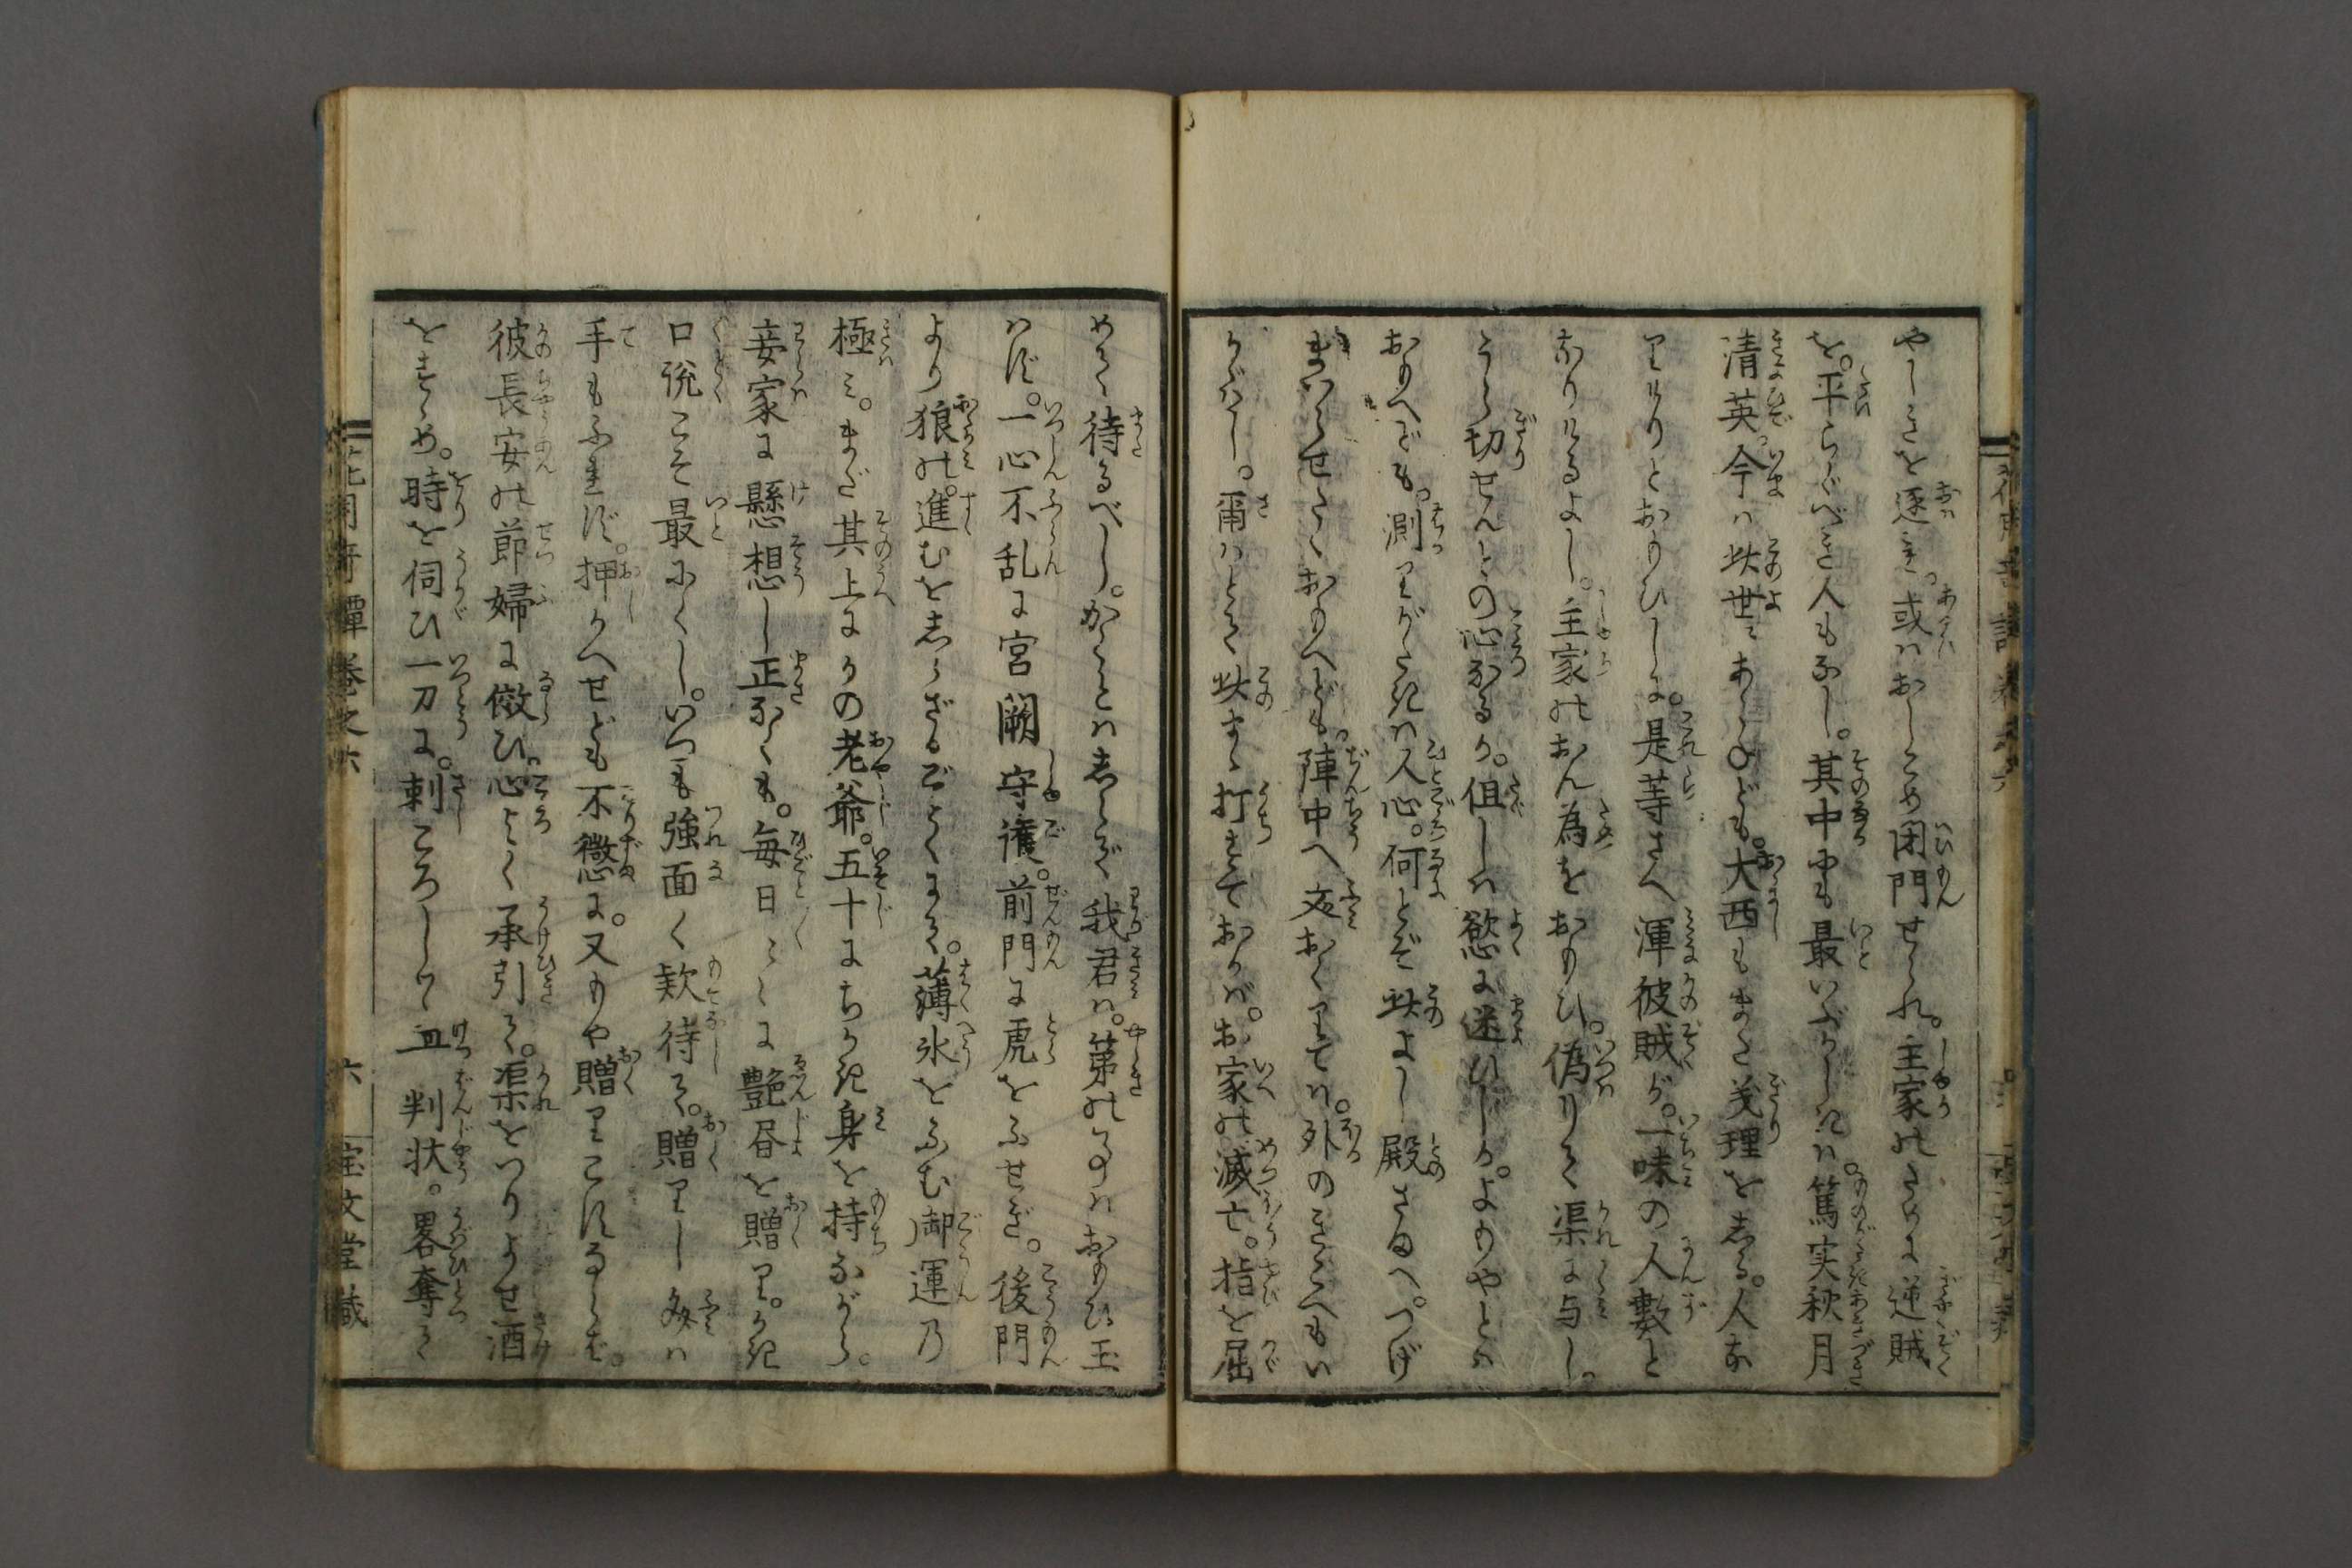 やしきを逐ゐ。或ハおしこめ閉門せられ。主家のさめに逆賊
を。平らぐべき人もなし。其中中も最いぶかしきハ。篤実秋月
清英。今ハ此世にあらねども。大西もまた義理をしる。人な
りけりとおもひしに。是等さへ渾彼賊が。一味の人数と
なりけるよし。主家のおん為をおもひ。偽りて渠に与し。
うら切せんとの心なるか。但しハ慾に迷ひしか。よもやとハ
おもへども。測りがたきハ人心。何とぞ此よし殿さまへ。つげ
まいらせたくおもへども。陣中へ文おくりてハ。外のきこへもい
かゞハし。爾ハとて此まゝ打すておかバ。お家の滅亡。指を屈
めて待るべし。かくとハしらで我君ハ。第のものハおもひ玉
ハず。一心不乱に宮闕守護。前門に虎をふせぎ。後門
より狼の。進むをしらざるごとくにて。薄氷をふむ御運乃
極ミ。まだ其上にかの老爺。五十にちかき身を持ながら。
妾家に懸想し正なくも。毎日〻に艶書を贈り。かき
口説こそ最にくし。いつも強面く欵待て。贈りし文ハ
手もふれず。押かへせども不懲に。又もや贈りこすならバ。
彼長安の節婦に傚ひ。心よく承引て。渠をつりよせ酒
をすゝめ。時を伺ひ一刀に。刺ころしけく血判状。畧奪て
花間奇譚巻之六 六 宝文堂蔵